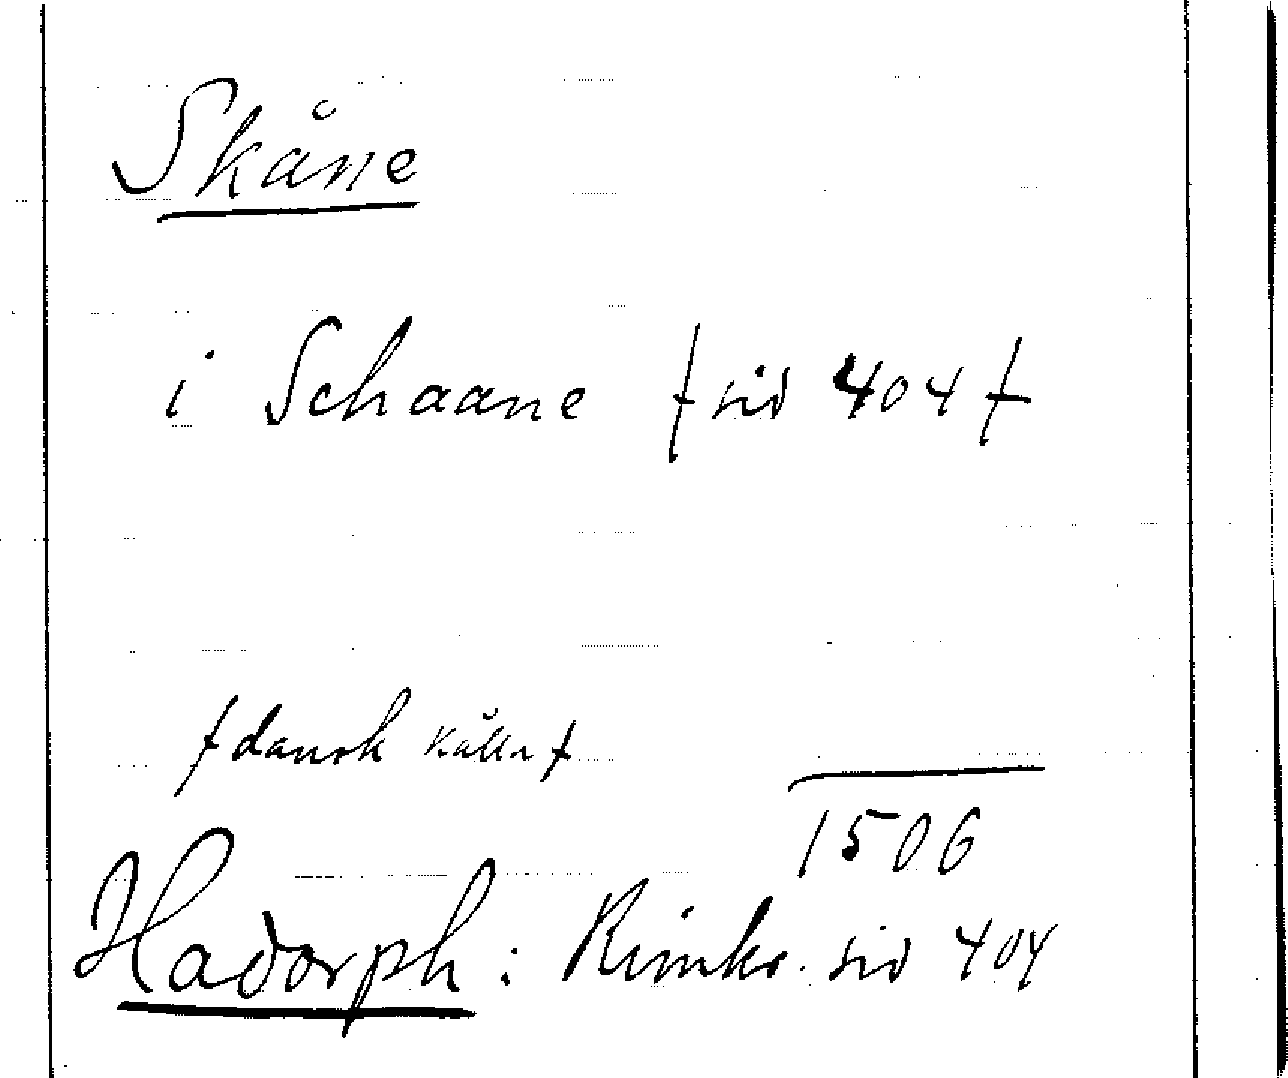 Skåne
i Schaane ƒ sid 404 ƒ
ƒ dansk källa ƒ
1506
Hadorph: Rimkr. sid 404